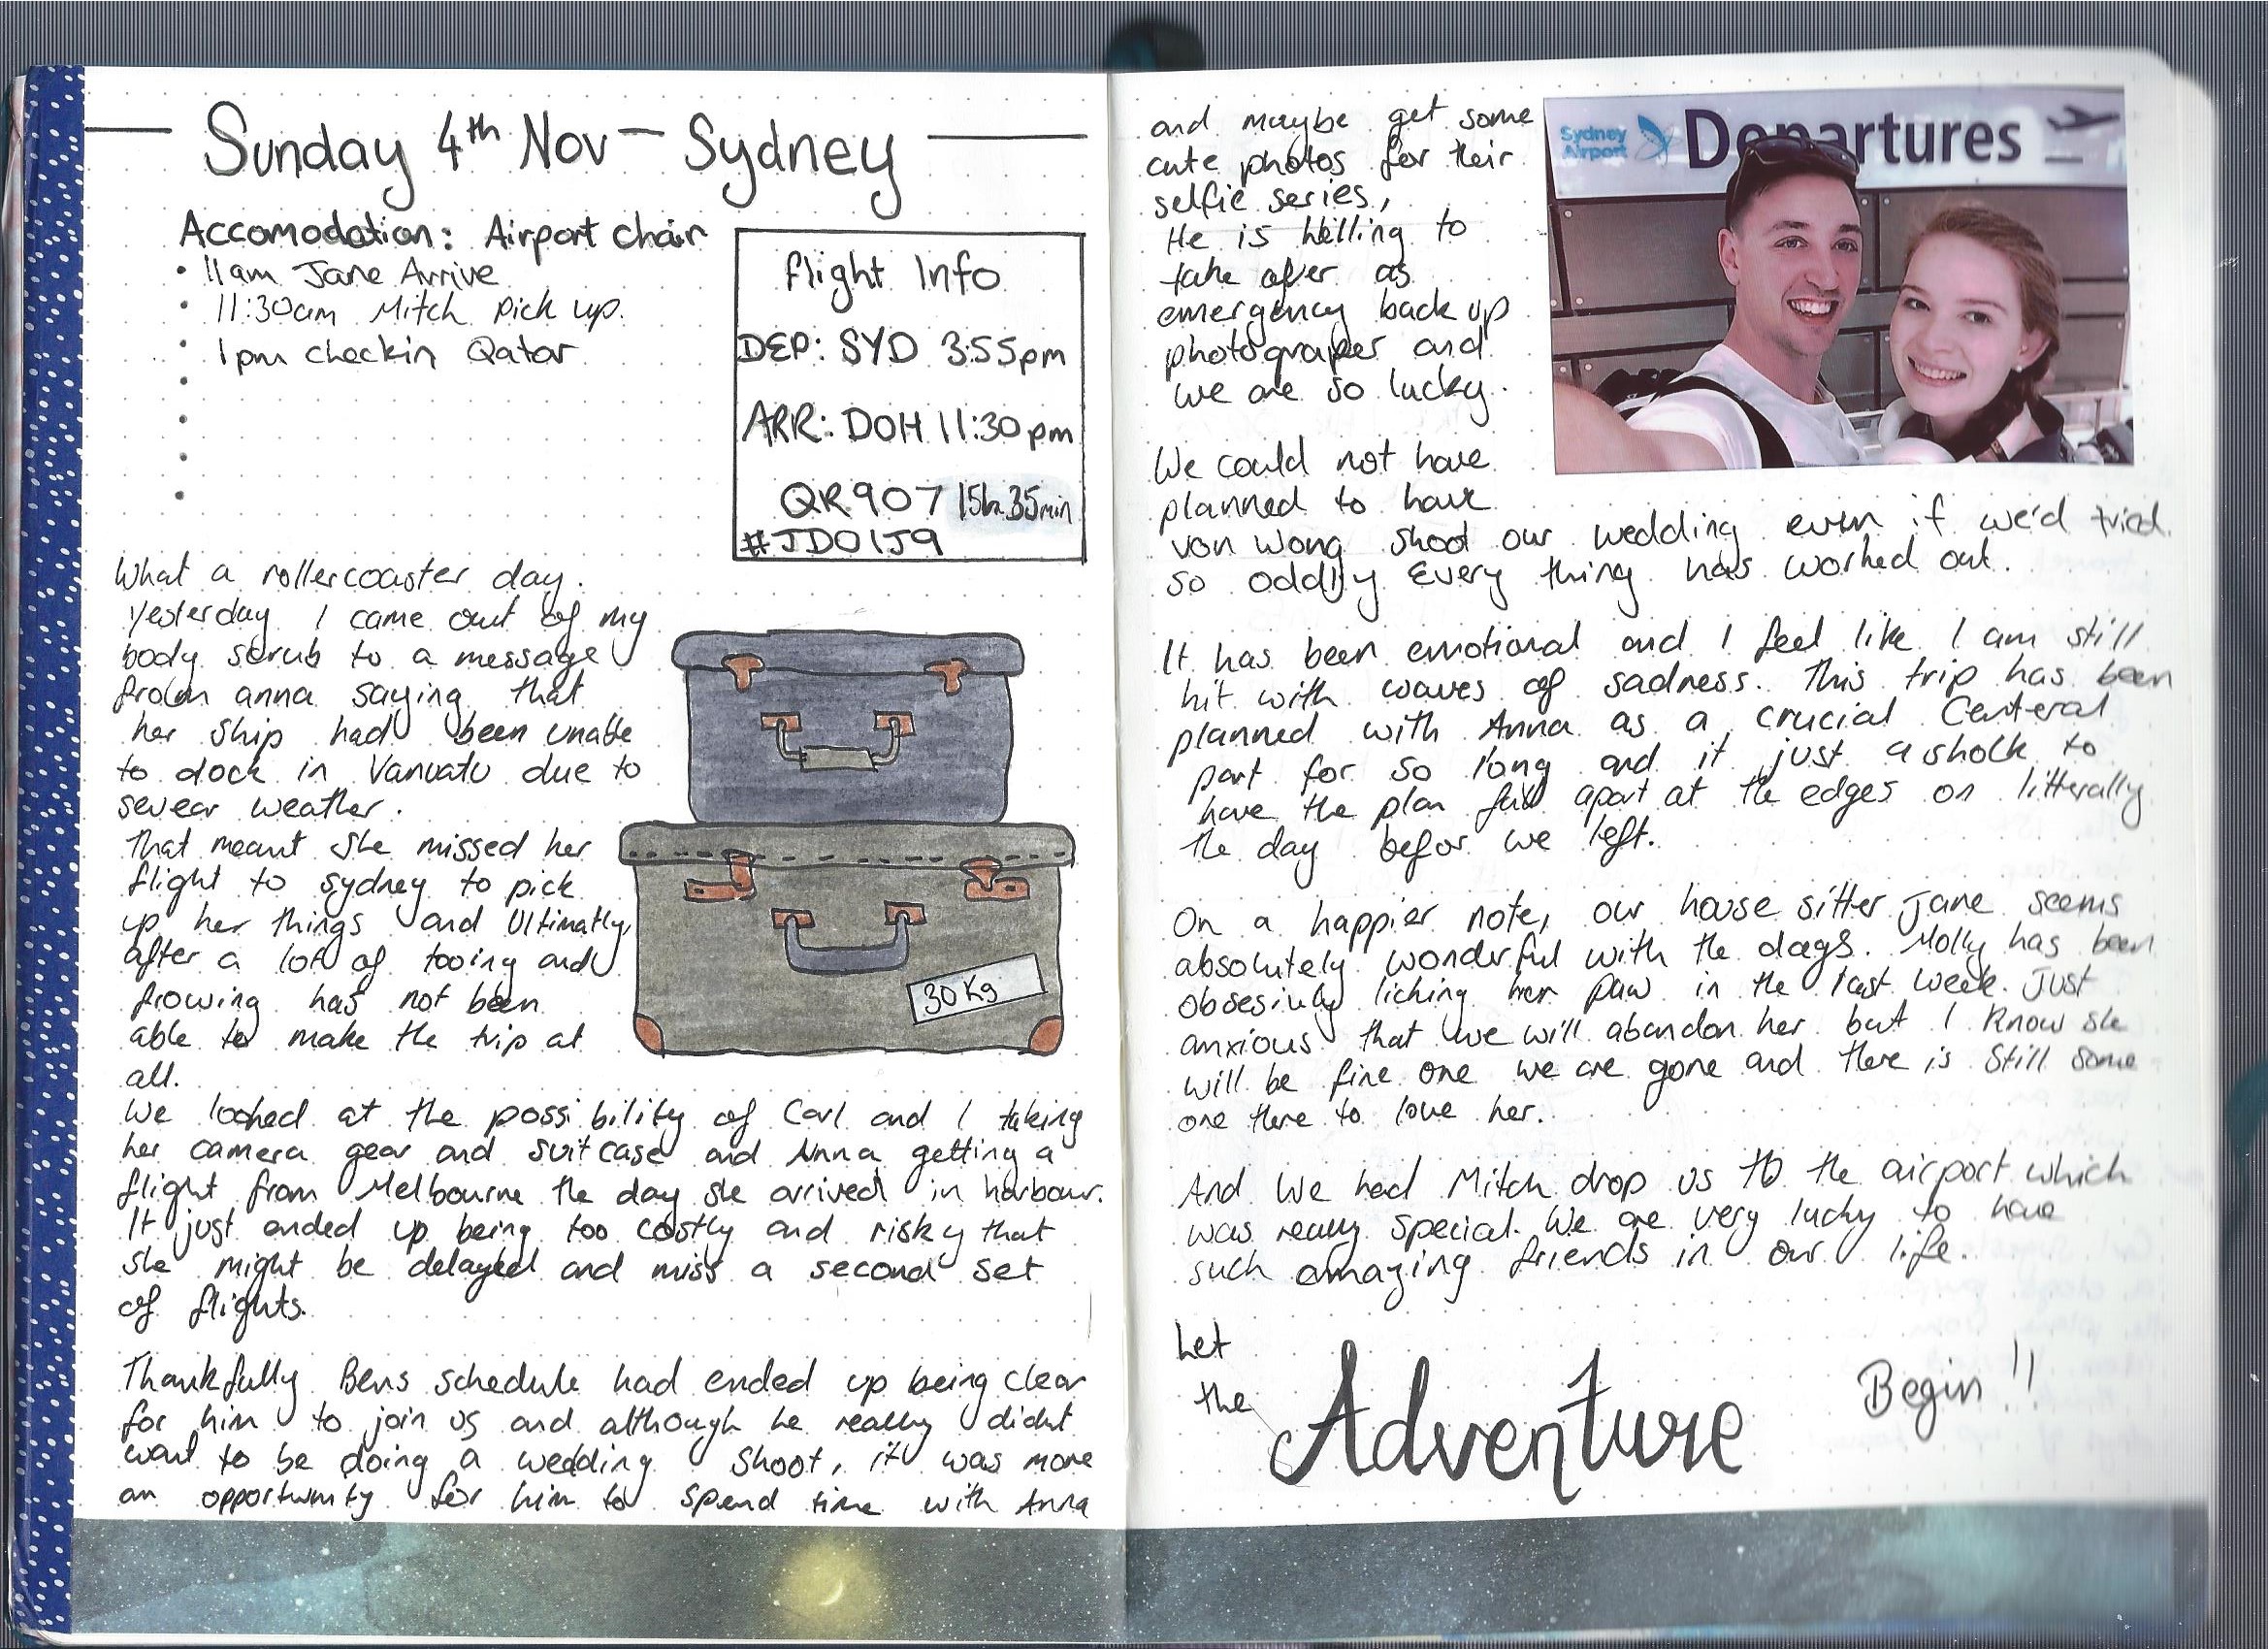 Sunday 4th Nov - Sydney
Accomodation: Airport chair
• 11am Jane Arrive
• 11:30am Mitch pick up.
• 1pm checkin Qatar
flight Info
DEP: SYD 3:55pm
ARR: DOH 11:30pm
QR907 15hr 35min
#JDO1J9
What a rollercoaster day.
Yesterday I came out of my
body scrub to a message
from anna saying that
her ship had been unable
to dock in Vanuatu due to
sevear weather.
That meant she missed her
flight to sydney to pick
up her things and Ultimatly,
after a lot of tooing and
frowing has not been
able to make the trip at
all.
30Kg
We looked at the possibility of Carl and I taking
her camera gear and suitcase and Anna getting a
flight from Melbourne the day she arrived in harbour.
It just ended up being too costly and risky that
she might be delayed and miss a second set
of flights.
Thankfully Bens schedule had ended up being clear
for him to join us and although he really didnt
want to be doing a wedding shoot, it was more
an opportunity for him to spend time with Anna
and maybe get some
cute photos for their
selfie series,
He is willing to
take over as
emergency back up
photographer and
we are so lucky.
Sydney
Airport
Departures
We could not have
planned to have
von Wong shoot our wedding even if we'd tried.
so oddly every thing has worked out.
It has been emotional and I feel like I am still
hit with waves of sadness. This trip has been
planned with Anna as a crucial Centeral
part for so long and it just a shock to
have the plan fall apart at the edges on litterally
the day befor we left.
On a happier note, our house sitter Jane seems
absolutely wonderful with the dogs. Molly has been
obsesivly licking her paw in the last week. Just
anxious that we will abandon her but I know she
will be fine one we are gone and there is still some
one there to love her.
And we had Mitch drop us to the airport which
was really special. We are very lucky to have
such amazing friends in our life.
Let
the
Adventure
Begin!!